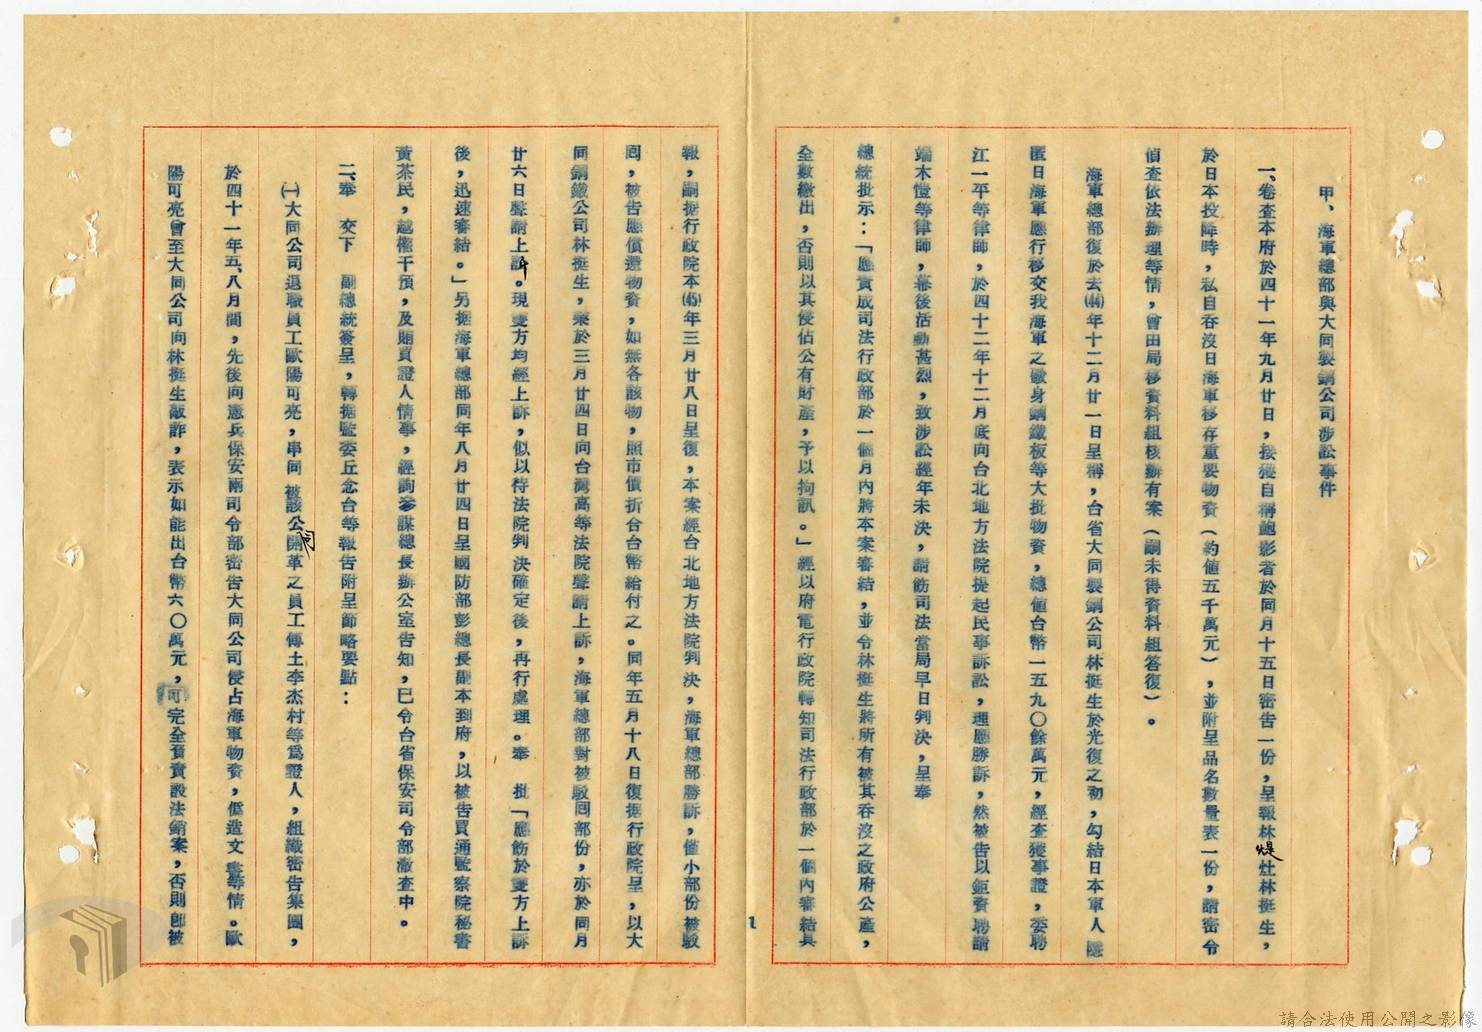 甲、海軍總部與大同製鋼公司涉訟事件
一、卷查本府於四十一年九月廿日，接獲自稱鮑影者於同月十五日密告一份，呈報林煶灶林挺生，
於日本投降時，私自吞沒日海軍移存重要物資（約值五千萬元），並附呈品名數量表一份，請密令
偵查依法辦理等情，曾由局移資料組核辦有案（嗣未得資料組答復）。
海軍總部復於去㈣年十二月廿一日呈稱，台省大同製鋼公司林挺生於光復之初，勾結日本軍人隱
匿日海軍應行移交我海軍之礮身鋼鐵板等大批物資，總值台幣一五九〇餘萬元，經查獲事證，委聘
江一平等律師，於四十二年十二月底向台北地方法院提起民事訴訟，理應勝訴，然被告以鉅資聘請
端木愷等律師，幕後活動甚烈，致涉訟經年未決，請飭司法當局早日判決，呈奉
總統批示：「應責成司法行政部於一個月內將本案審結，並令林挺生將所有被其吞沒之政府公產，
全數繳出，否則以其侵佔公有財產，予以拘訊。」經以府電行政院轉知司法行政部於一個內審結具
報，嗣據行政院本㈣年三月廿八日呈復，本案經台北地方法院判決，海軍總部勝訴，僅小部份被駁
回，被告應償還物資，如無各該物，照市價折合台幣給付之。同年五月十八日復據行政院呈，以大
同鋼鐵公司林挺生，業於三月廿四日向台灣高等法院聲請上訴，海軍總部對被駁回部份，亦於同月
廿六日聲請上訴。現雙方均經上訴，似以待法院判決確定後，再行處理。奉　批「應飭於雙方上訴
後，迅速審結。」另據海軍總部同年八月廿四日呈國防部彭總長副本到府，以被告買通監察院秘書
黃茶民，越權干預，及賄買證人情事，經詢參謀總長辦公室告知，已令台省保安司令部澈查中。
二、奉　交下　副總統簽呈，轉據監委丘念台等報告附呈節略要點：
㈠大同公司退職員工歐陽可亮，串同　被該公司開革之員工傅土李杰村等爲證人，組織密告集團，
於四十一年五、八月間，先後向憲兵保安兩司令部密告大同公司侵占海軍物資，僞造文書等情。歐
陽可亮曾至大同公司向林挺生敲詐，表示如能出台幣六〇萬元，可完全負責設法銷案，否則卽被
1
請合法使用公開之影像